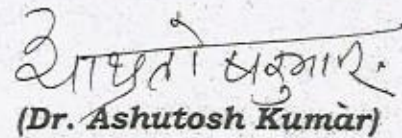 आशुतोष कुमार.
(Dr. Ashutosh Kumar)